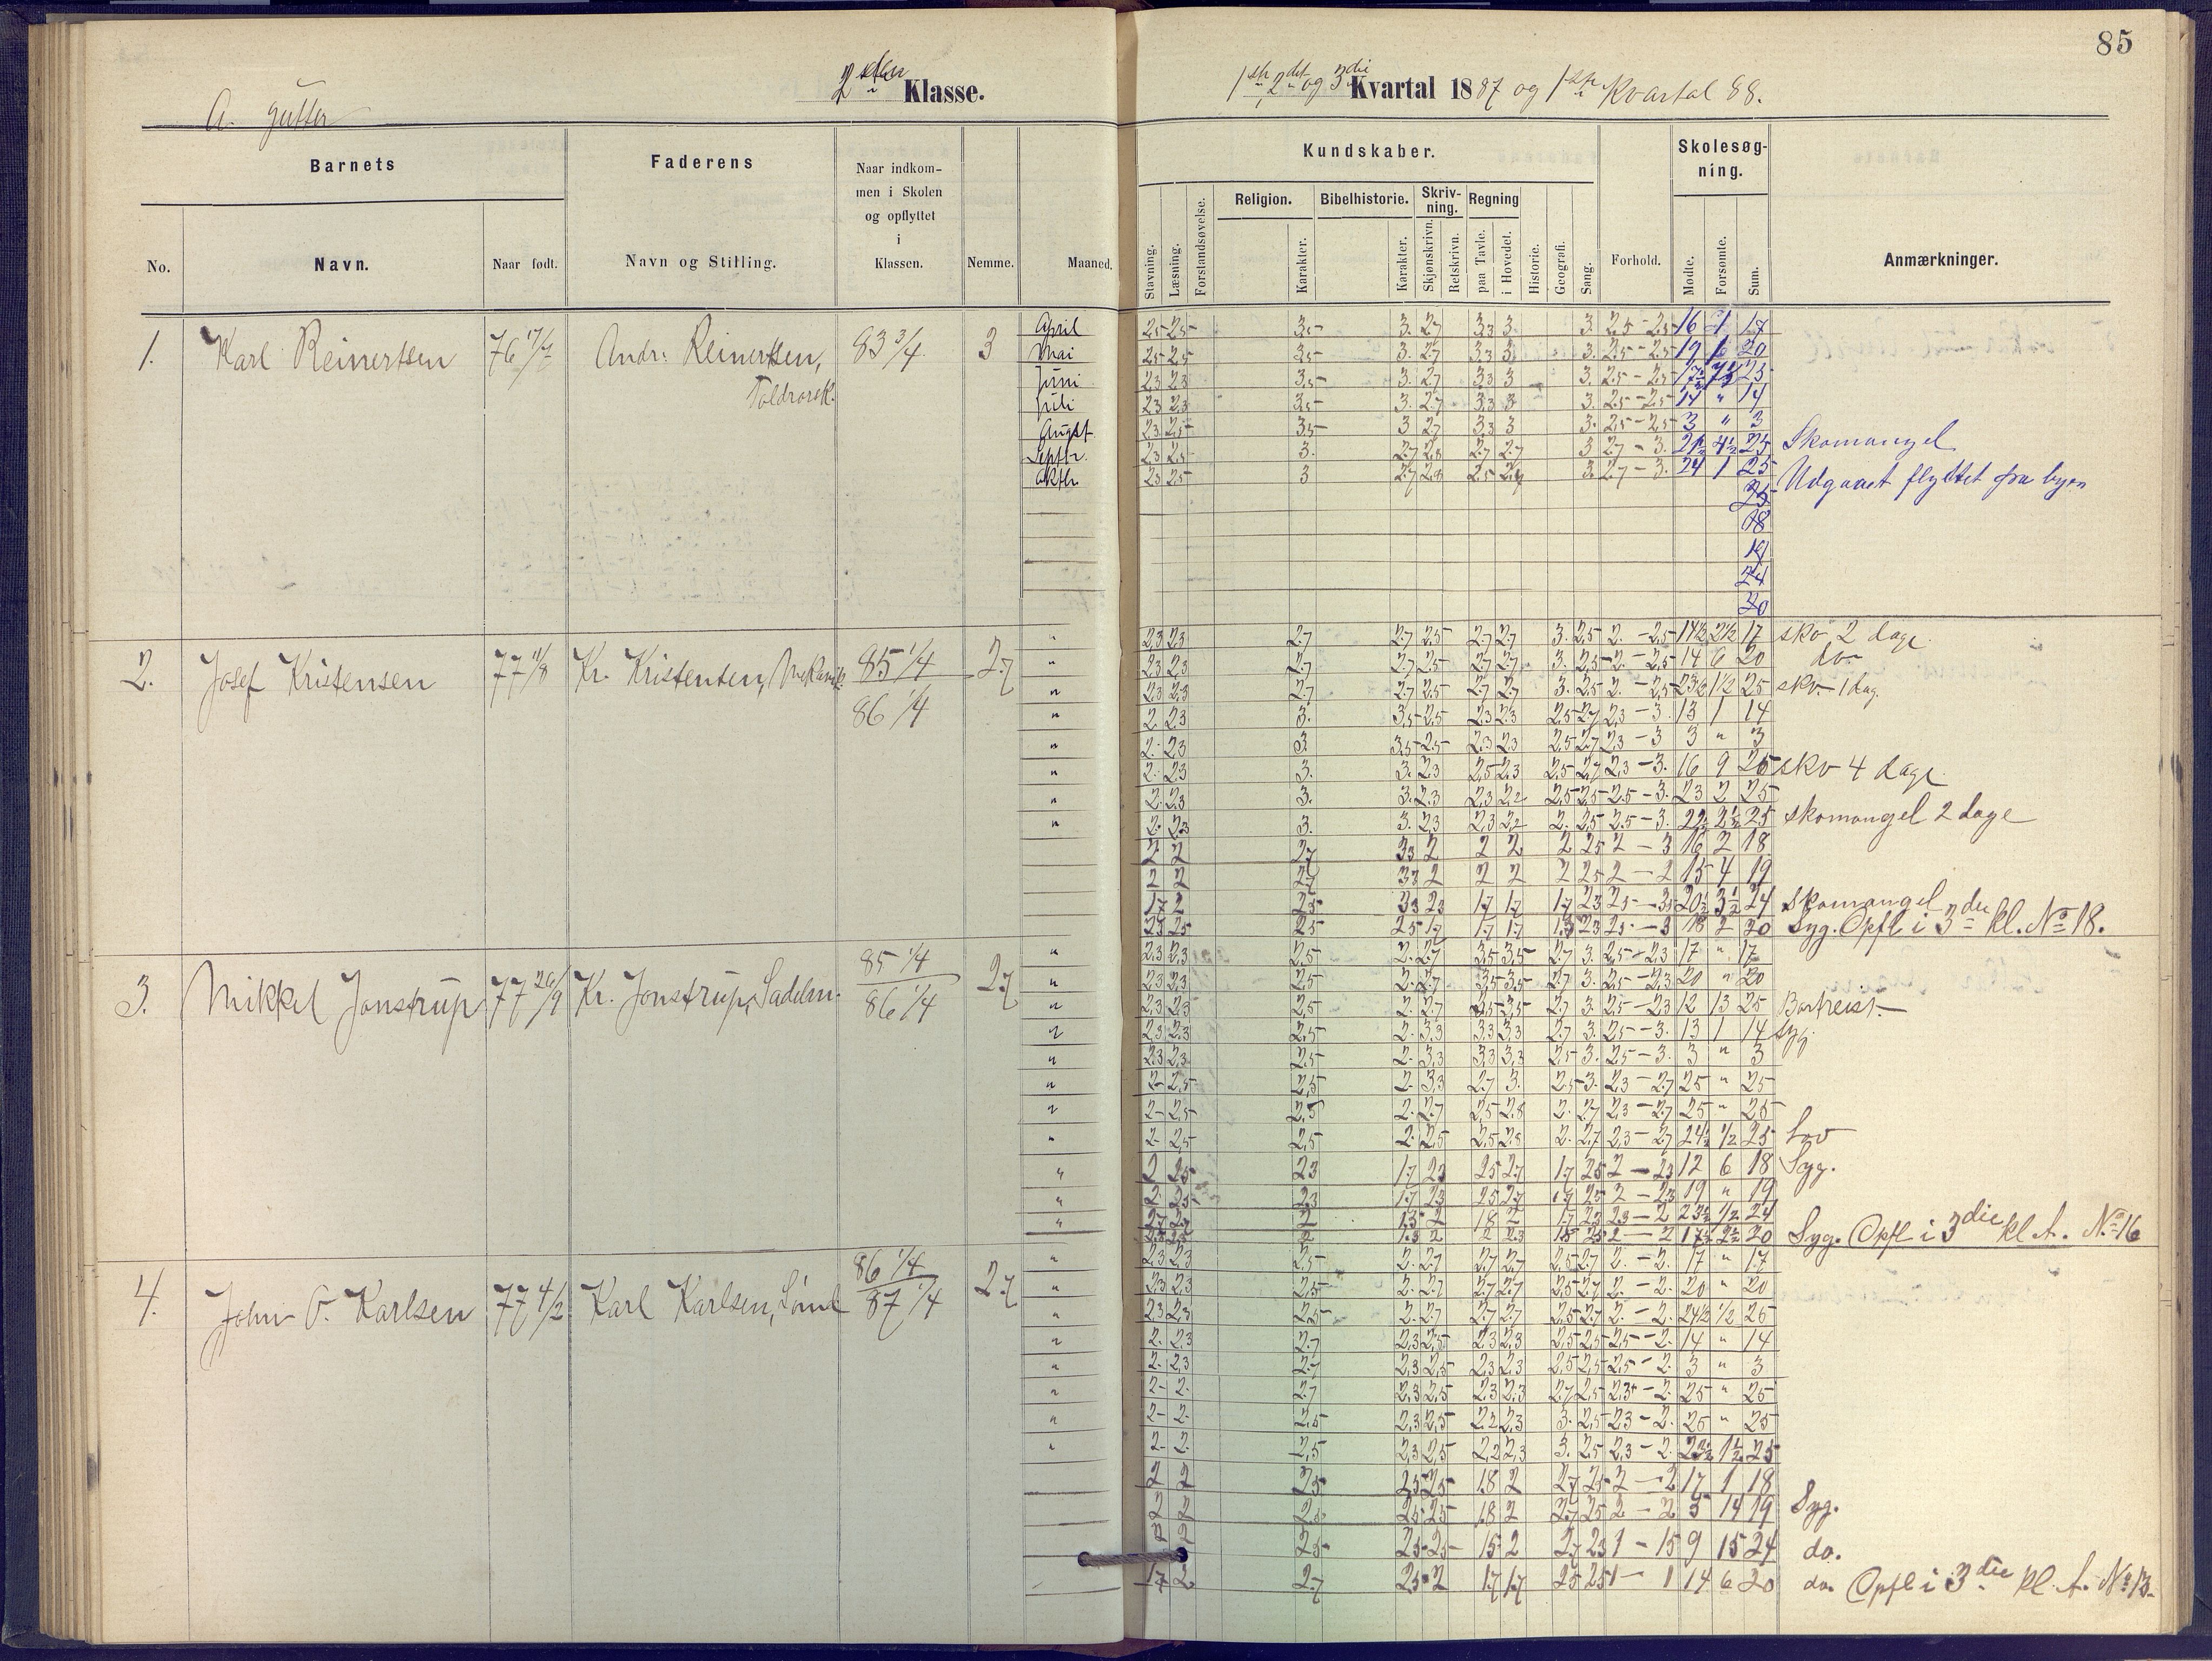 85
2den Klasse.
1ste, 2det og 3die Kvartal 1887 og 1ste Kvartal 88.
A. gutter
Barnets
Faderens
Naar indkommen i Skolen og opflyttet i Klassen.
Nemme.
Maaned.
Kundskaber.
Forhold.
Skolesøgning.
Anmærkninger.
No.
Navn.
Naar født.
Navn og Stilling.
Stavning.
Læsning.
Forstandsøvelse.
Religion.
Karakter.
Bibelhistorie.
Karakter.
Skrivning.
Skjønskrivn.
Retskrivn.
Regning
paa Tavle.
i Hovedet.
Historie.
Geografi.
Sang.
Mødte.
Forsømte.
Sum.
1. Karl Reinertsen 76 17/7 Andr: Reinertsen, 83 3/4 3
April 2,5 2,5 3,5 3. 2,7 3,3 3 3. 2,5 - 2,5 16 1 17
Mai 2,5 2,5 3,5 3. 2,7 3,3 3 3. 2,5 - 2,5 19 20
Juni 2,3 2,3 3,5 3. 2,7 3,3 3 3. 2,5 - 2,5
Juli 2,3 2,3 3,5 3. 2,7 3,3 3 3. 2,5 - 2,5 14 " 14
Augst 2,3 2,5 3,5 3 2,7 3,3 3 3. 2,5 - 2,5 3 " 3
Septbr. 2,3 2,5 3. 2,7 2,8 2,7 2,7 3 2,7 - 3. 4½ 25 Skomangel
Oktbr. 2,3 2,5 3 2,7 2,8 2,5 3. 2,7 - 3. 24 1 25 Udgaaet flyttet fra byen
25
18
19
24
20
2. Josef Kristensen 77 11/8 Kr. Kristensen, Mekanik. 85 1/4 86 1/4 2,7
" 2,3 2,3 2,7 2,7 2,5 2,7 2,7 3. 2,5 2. - 2,5 14½ 2½ 17 sko 2 dage
" 2,3 2,3 2,7 2,7 2,5 2,7 2,7 3. 2,5 2. - 2,5 14 6 20 do-
" 2,3 2,3 2,7 2,7 2,5 2,7 2,7 3. 2,5 2. - 2,5 23½ 1½ 25 sko - 1 dag.
" 2. 2,3 3. 3,5 2,5 2,3 2,3 2,5 2,7 2,3 - 3. 13 1 14
" 2. 2,3 3. 3,5 2,5 2,3 2,3 2,5 2,7 2,3 - 3 3 " 3
" 2. 2,3 3. 3. 2,3 2,5 2,3 2,5 2,7 2,3 - 3. 16 9 25 sko 4 dage
" 2. 2,3 3. 3. 2,3 2,3 2,2 2,5 2,5 2,5 - 3. 23 2 25
" 2. 2,3 3. 3. 2,3 2,3 2,2 2. 2,5 2,5 - 3. 22½ 2½ 25 skomangel 2 dage
2 2 2,7 33 2 2 2 2 25 2 - 3 16 2 18
2 2 2,7 33 2 2 2 2 25 2 - 2 15 4 19
1,7 2 25 33 23 1,7 1,7 1,7 23 25 - 3 20½ 3½ 24 skomangel
25 25 25 25 1,7 1,7 1,7 1,3 23 25 - 3 18 2 20 Syg. Opfl i 3die kl. No 18.
3. Mikkel Jonstrup 77 26/9 Kr. Jonstrup, Sadelm. 85 1/4 86 1/4 2,7
" 2,3 2,3 2,5 2. 2,7 3,5 3,5 2,7 3. 2,5 - 2,3 17 " 17
" 2,3 2,3 2,5 2. 2,7 3,5 3,5 2,7 3. 2,5 - 2,3 20 " 20
" 2,3 2,3 2,5 2. 2,7 3,5 3,5 2,7 3. 2,5 - 2,3 12 13 25 Bortreist
" 2,3 2,3 2,5 2. 3,3 3,3 3,3 2,7 3. 2,5 - 3. 13 1 14 Syg.
" 2,3 2,3 2,5 2. 3,3 3,3 3,3 2,5 3. 2,5 - 3. 3 " 3
" 2- 2,5 2,5 2. 3,3 2,7 3. 2,5 3. 2,3 - 2,7 25 " 25
" 2- 2,5 2,5 2. 2,7 2,5 2,8 2. 2,7 2,3 - 2,7 25 " 25
" 2- 2,5 2,5 2. 2,5 2,5 2,8 2. 2,7 2,3 - 2,7 24½ ½ 25
" 2 25 23 1,7 23 25 2,7 1,7 25 2 - 23 12 6 18 Syg.
" 2. 25 23 1,7 23 25 2,7 1,7 25 2 - 23 19 " 19
" 2,7 2,7 2 1,3 2 18 2 1,7 23 23 - 2 23½ ½ 24
2 1,3 2 2 2,3 15 25 2 - 2 17½ 2½ 20 Syg. Opfl i 3die kl. A. No 16
4. John O. Karlsen 77 4/2 Karl Karlsen, 86 1/4 87 1/4 2,7
" 2,3 2,3 2,5 2. 2,7 2,7 2,7 2,5 2,7 2. - 2. 17 " 17
" 2,3 2,3 2,5 2. 2,7 2,7 2,7 2,5 2,7 2. - 2. 20 " 20
" 2,3 2,3 2,5 2. 2,7 2,7 2,7 2,5 2,7 2. - 2. 24½ ½ 25
" 2. 2,3 2,7 2,3 2,5 2,3 2,3 2,5 2,5 2,5 - 2. 14 " 14
" 2. 2,3 2,7 2,3 2,5 2,3 2,3 2,5 2,5 2,5 - 2. 3 " 3
" 2- 2. 2,7 2,3 2,5 2,3 2,3 2,7 2,5 2,3 - 2. 25 " 25
" 2- 2. 2,5 2,3 2,5 2,2 2,3 3. 2,5 2,3 - 2. 25 " 25
" 2- 2. 2,5 2,3 2,5 2,2 2,3 3. 2,5 2,3 - 2. 23½ 1½ 25
2 2 25 25 25 1.8 2 27 25 2 - 2 17 1 18
2 2 25 25 18 2 27 25 2 - 2 5 14 19 Syg.
2 2 25 25 25 15 2 27 23 1 - 15 9 15 24 do.
1,7 2 2,7 25 2 1,7 1,7 25 25 1 - 1 14 6 20 do. Opfl i 3die kl. A. No 13.